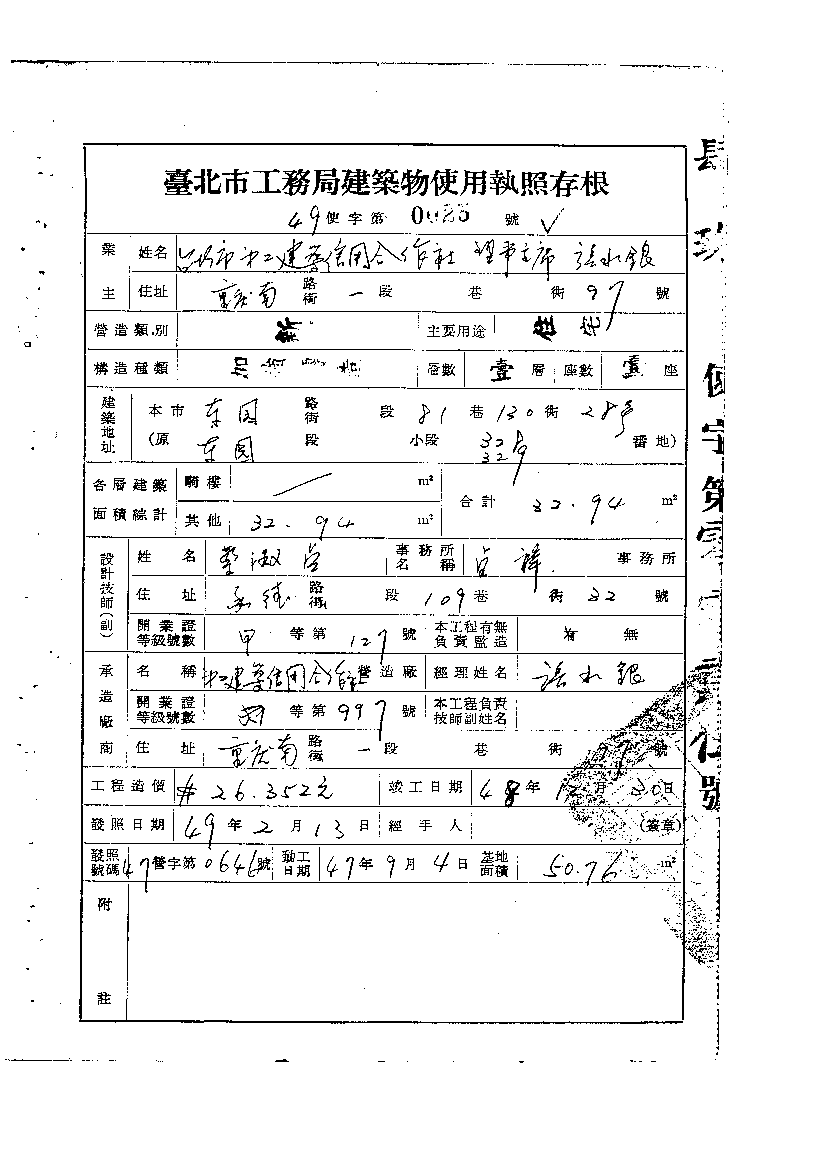 臺北市工務局建築物使用執照存根
49使字第 0025 號 ✓
業主 姓名 台北市第二建築信用合作社 理事主席 張水銀
住址 重慶南路街 一段 巷 衖 97 號
營造類別 新 主要用途 住宅
構造種類 層數 壹層 座數 壹座
建築地址 本市 東園 路街 段 81 巷 130 衖 28号
(原 東園 段 小段 32 32号 番地)
各層建築面積總計 騎樓 / m² 合計 32.94 m²
其他 32.94 m²
設計技師(副) 姓名 蔡淑 事務所名稱 事務所
住址 承德 路街 段 109 巷 衖 32 號
開業證等級號數 甲 等第 127 號 本工程有無負責監造 有 無
承造廠商 名稱 建築信用合作社 營造廠 經理姓名 張水銀
開業證等級號數 等第 997 號 本工程負責技師副姓名
住址 重慶南路街 一段 巷 衖 97 號
工程造價 # 26.352元 竣工日期 48年 12月 30日
發照日期 49年 2月 13日 經手人 (簽章)
發照號碼 47營字第 0646號 動工日期 47年 9月 4日 基地面積 50.76 m²
附註
肆玖 使字第零零貳伍號